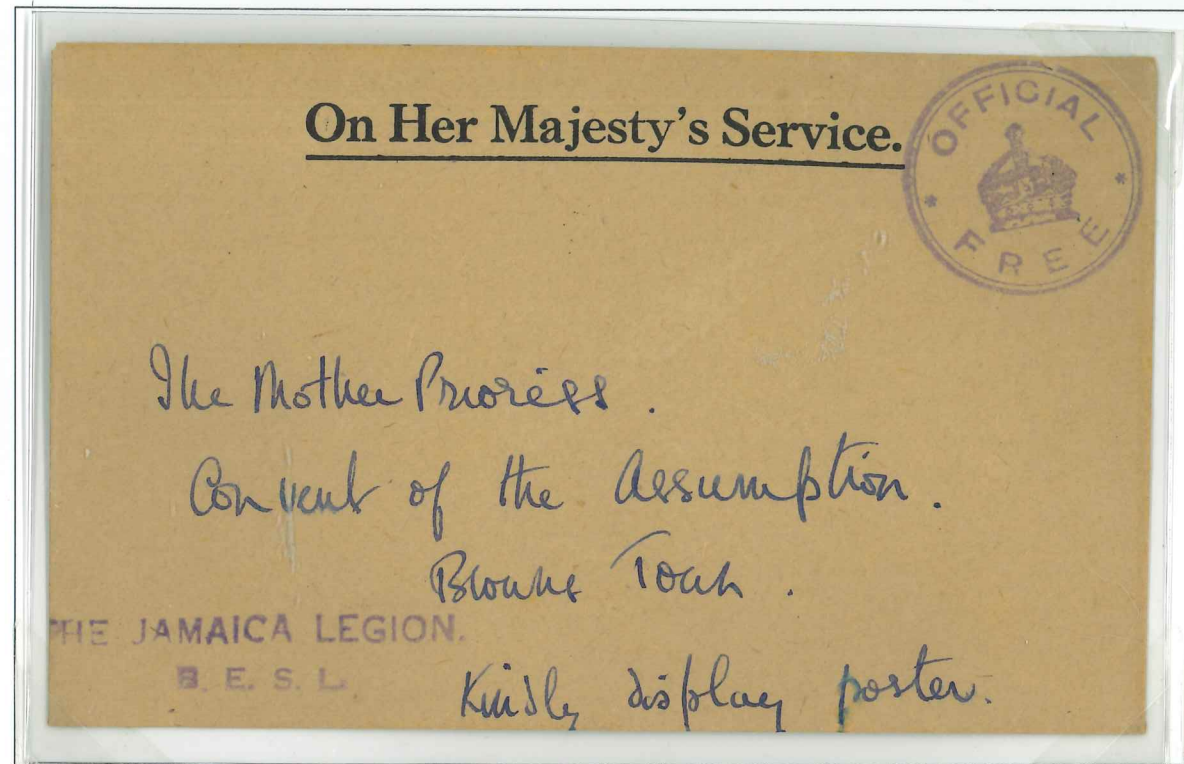 On Her Majesty's Service.
OFFICIAL
FREE
The Mother Prioress.
Convent of the Assumption.
Browns Town.
THE JAMAICA LEGION.
B. E. S. L.
Kindly display poster.